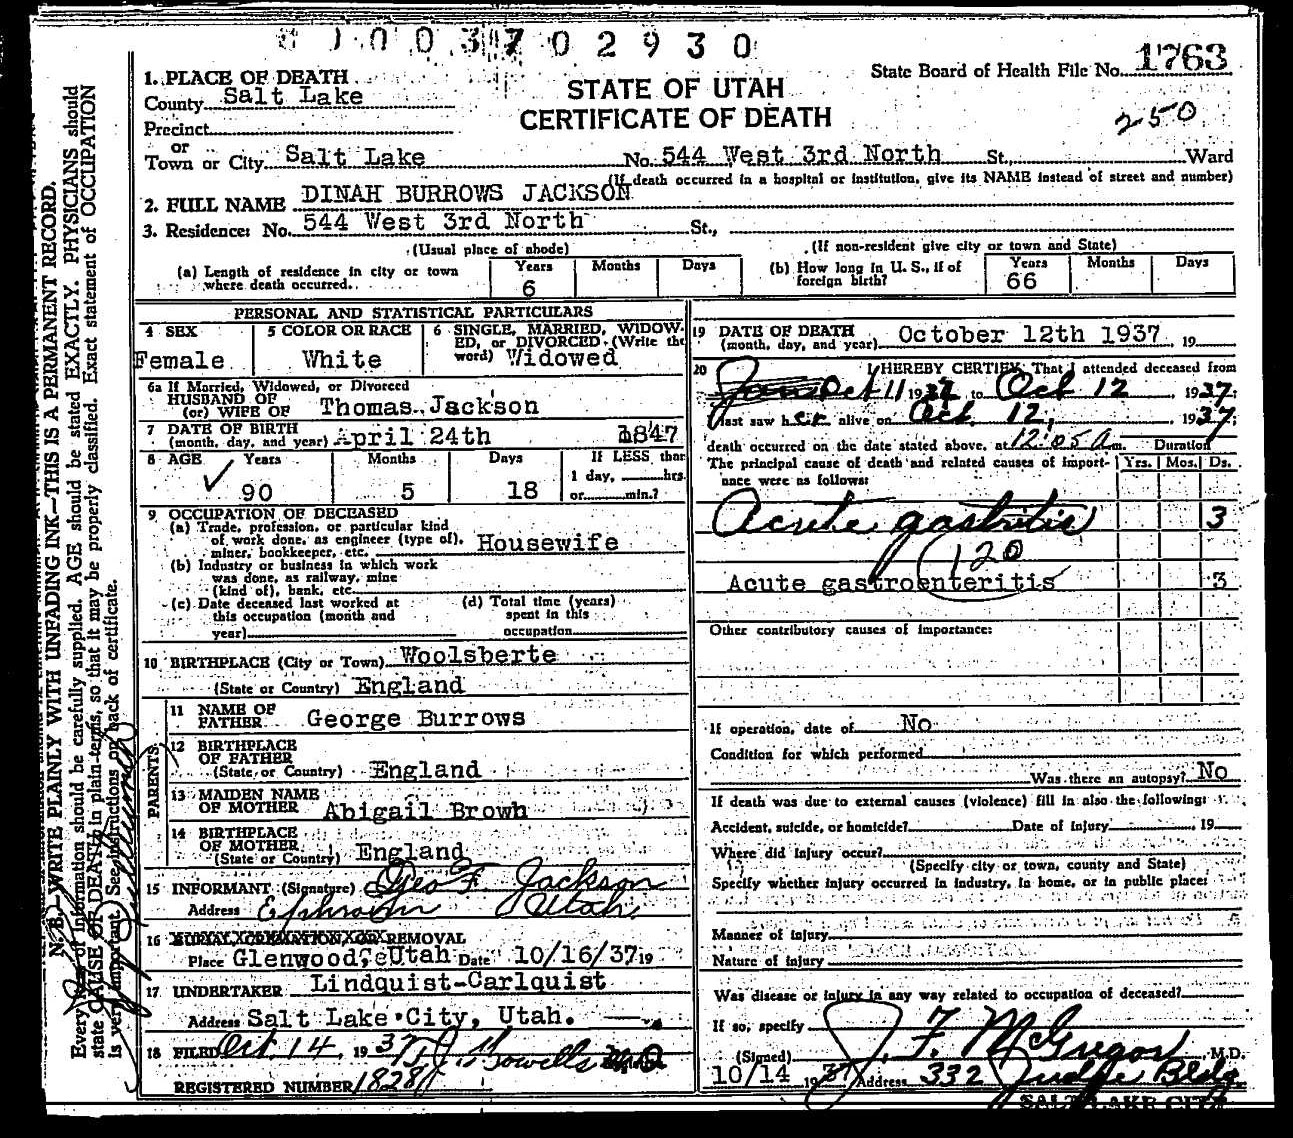 0 0 3 7 0 2 9 3 0
State Board of Health File No. 1763
STATE OF UTAH
CERTIFICATE OF DEATH
250
1. PLACE OF DEATH
County Salt Lake
Precinct
or
Town or City Salt Lake No. 544 West 3rd North St., Ward
(If death occurred in a hospital or institution, give its NAME instead of street and number)
2. FULL NAME DINAH BURROWS JACKSON
3. Residence: No. 544 West 3rd North St.,
(Usual place of abode) (If non-resident give city or town and State)
(a) Length of residence in city or town where death occurred. Years 6 Months Days
(b) How long in U. S., if of foreign birth? Years 66 Months Days
PERSONAL AND STATISTICAL PARTICULARS
4 SEX Female
5 COLOR OR RACE White
6 SINGLE, MARRIED, WIDOWED, or DIVORCED (Write the word) Widowed
6a If Married, Widowed, or Divorced
HUSBAND OF
(or) WIFE OF Thomas Jackson
7 DATE OF BIRTH
(month, day, and year) April 24th 1847
8 AGE Years 90 Months 5 Days 18
If LESS than
1 day, hrs.
or min.?
9 OCCUPATION OF DECEASED
(a) Trade, profession, or particular kind
of work done, as engineer (type of),
miner, bookkeeper, etc. Housewife
(b) Industry or business in which work
was done, as railway, mine
(kind of), bank, etc.
(c) Date deceased last worked at
this occupation (month and
year)
(d) Total time (years)
spent in this
occupation
10 BIRTHPLACE (City or Town) Woolsberte
(State or Country) England
PARENTS
11 NAME OF
FATHER George Burrows
12 BIRTHPLACE
OF FATHER
(State or Country) England
13 MAIDEN NAME
OF MOTHER Abigail Brown
14 BIRTHPLACE
OF MOTHER
(State or Country) England
15 INFORMANT (Signature) Geo F Jackson
Address Ephraim Utah
16 BURIAL, CREMATION OR REMOVAL
Place Glenwood, Utah Date 10/16/37 19
17 UNDERTAKER Lindquist-Carlquist
Address Salt Lake City, Utah.
18 FILED Oct. 14, 1937
REGISTERED NUMBER 1828
19 DATE OF DEATH
(month, day, and year) October 12th 1937, 19
20 I HEREBY CERTIFY, That I attended deceased from
Oct 11 1937 to Oct 12, 1937;
I last saw her alive on Oct. 12, 1937;
death occurred on the date stated above, at 12:05 A m. Duration
The principal cause of death and related causes of importance were as follows: Yrs. Mos. Ds.
Acute gastritis 3
120
Acute gastroenteritis 3
Other contributory causes of importance:
If operation, date of No
Condition for which performed
Was there an autopsy? No
If death was due to external causes (violence) fill in also the following:
Accident, suicide, or homicide? Date of injury , 19
Where did injury occur?
(Specify city or town, county and State)
Specify whether injury occurred in industry, in home, or in public place:
Manner of injury
Nature of injury
Was disease or injury in any way related to occupation of deceased?
If so, specify
(Signed) J. F. McGregor, M.D.
10/14 1937 Address 332 Judge Bldg.
SALT LAKE CITY
N. B.—WRITE PLAINLY WITH UNFADING INK—THIS IS A PERMANENT RECORD.
Every item of information should be carefully supplied. AGE should be stated EXACTLY. PHYSICIANS should
state CAUSE OF DEATH in plain terms, so that it may be properly classified. Exact statement of OCCUPATION
is very important. See instructions on back of certificate.